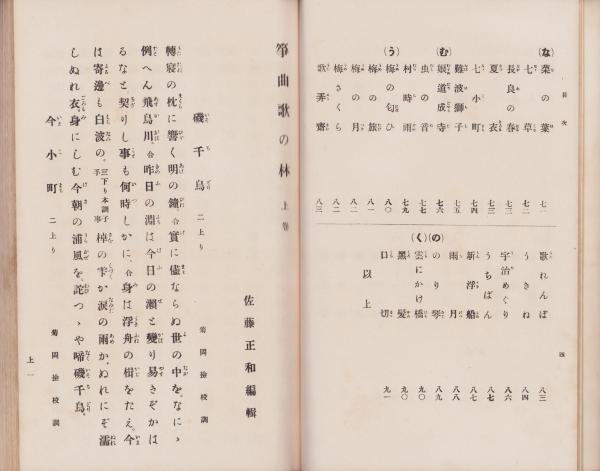 目次
(な)
菜の葉 七一
七草 七二
長良の春 七三
夏衣 七三
七小町 七四
難波獅子 七五
(む)
娘道成寺 七六
虫の音 七七
村時雨 七九
(う)
梅の匂ひ 八〇
梅の旅 八一
梅の月 八一
梅さくら 八二
歌弄齋 八三
歌れんぼ 八三
うきね 八四
宇治めぐり 八六
うちばん 八七
新浮船 八七
雨月 八八
(の)
のり琴 八九
(く)
雲にかけ橋 九〇
黑髪 九〇
口切 九一
以上
四
箏曲歌の林 上卷
佐藤正和編輯
磯千鳥 二上り 菊岡撿校調
轉寢の枕に響く明の鐘、合實に儘ならぬ世の中を、なにゝ
例へん飛鳥川、合昨日の淵は今日の瀨と變り易きぞかは
るなと、契りし事も何時しかに、合身は浮舟の楫をたえ、今
は寄邊も白波の、三下り本調子手事棹の雫か淚の雨か、ぬれにぞ濡
しぬれ衣、身にしむ今朝の浦風を、詫つゝや啼磯千鳥、
今小町 二上り 菊岡撿校調
上一